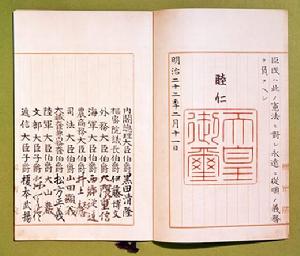 臣民ハ此ノ憲法ニ對シ永遠ニ從順ノ義務
ヲ負フヘシ
睦仁
天皇
御璽
明治二十二年二月十一日
內閣總理大臣伯爵黒田清隆
樞密院議長伯爵伊藤博文
外務大臣伯爵大隈重信
海軍大臣伯爵西郷從道
農商務大臣伯爵井上馨
司法大臣伯爵山田顯義
大藏大臣兼內務大臣伯爵松方正義
陸軍大臣伯爵大山巖
文部大臣子爵森有禮
遞信大臣子爵榎本武揚